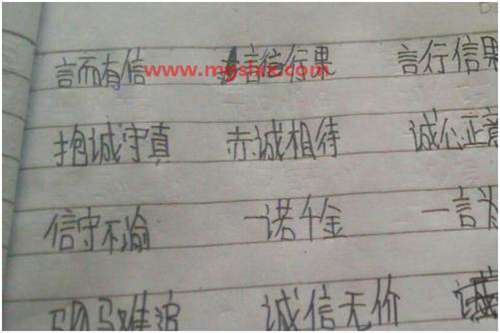 言而有信 言信行果 言行信果
www.mgshix.com
抱诚守真 赤诚相待 诚心正意
信守不渝 一诺千金 一言为
驷马难追 诚信无价 诚